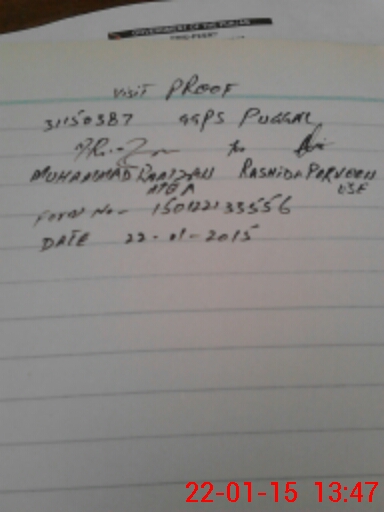 GOVERNMENT OF THE PUNJAB
VISIT PROOF
31150387 GGPS PUGGAL
MUHAMMAD RASHIDA PARVEEN
MEA ESE
FORM No- 150122133556
DATE 22-01-2015
22-01-15 13:47